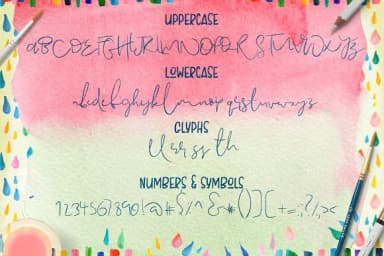 UPPERCASE
ABCDEFGHIJKLMNOPQRSTUVWXYZ
LOWERCASE
abcdefghijklmnopqrstuvwxyz
GLYPHS
NUMBERS & SYMBOLS
1234567890!@#$%^&*()[]+=,:?/;><